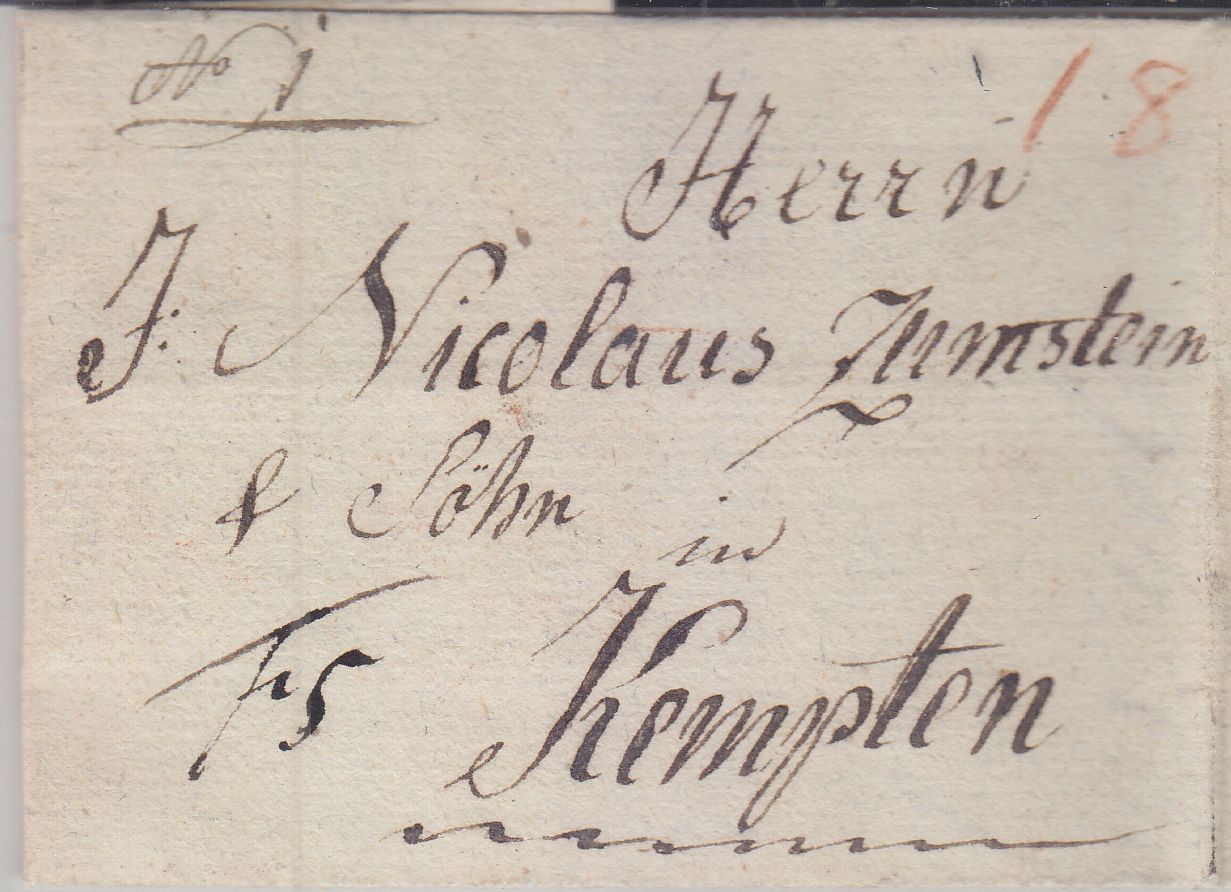 No 1
18
Herrn
J: Nicolaus Zumstein
& Söhn
in
Frs
Kempten